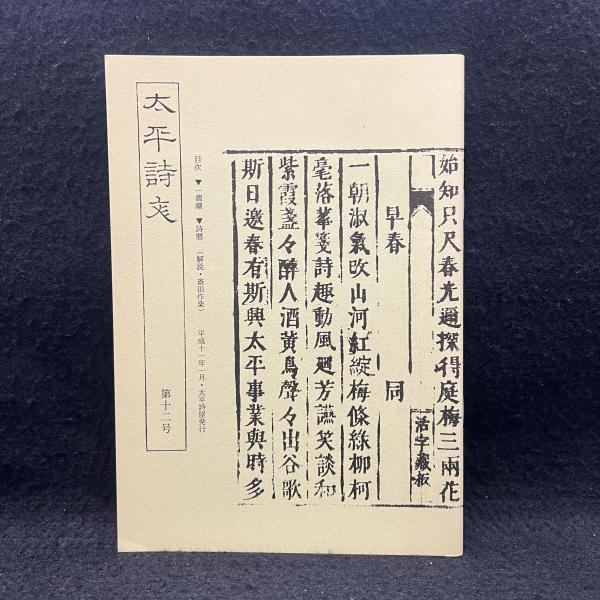 始知只尺春光遍探得庭梅三兩花
活字藏板
早春 同
一朝淑氣改山河紅綻梅條綠柳柯
毫落華箋詩趣動風廻芳讌笑談和
紫霞盞々醉人酒黄鳥聲々出谷歌
斯日邀春有斯興太平事業與時多
目次 ▼一週潮 ▼詩暦 (解説・斎田作楽) 平成十一年一月・太平詩屋発行
太平詩文
第十二号